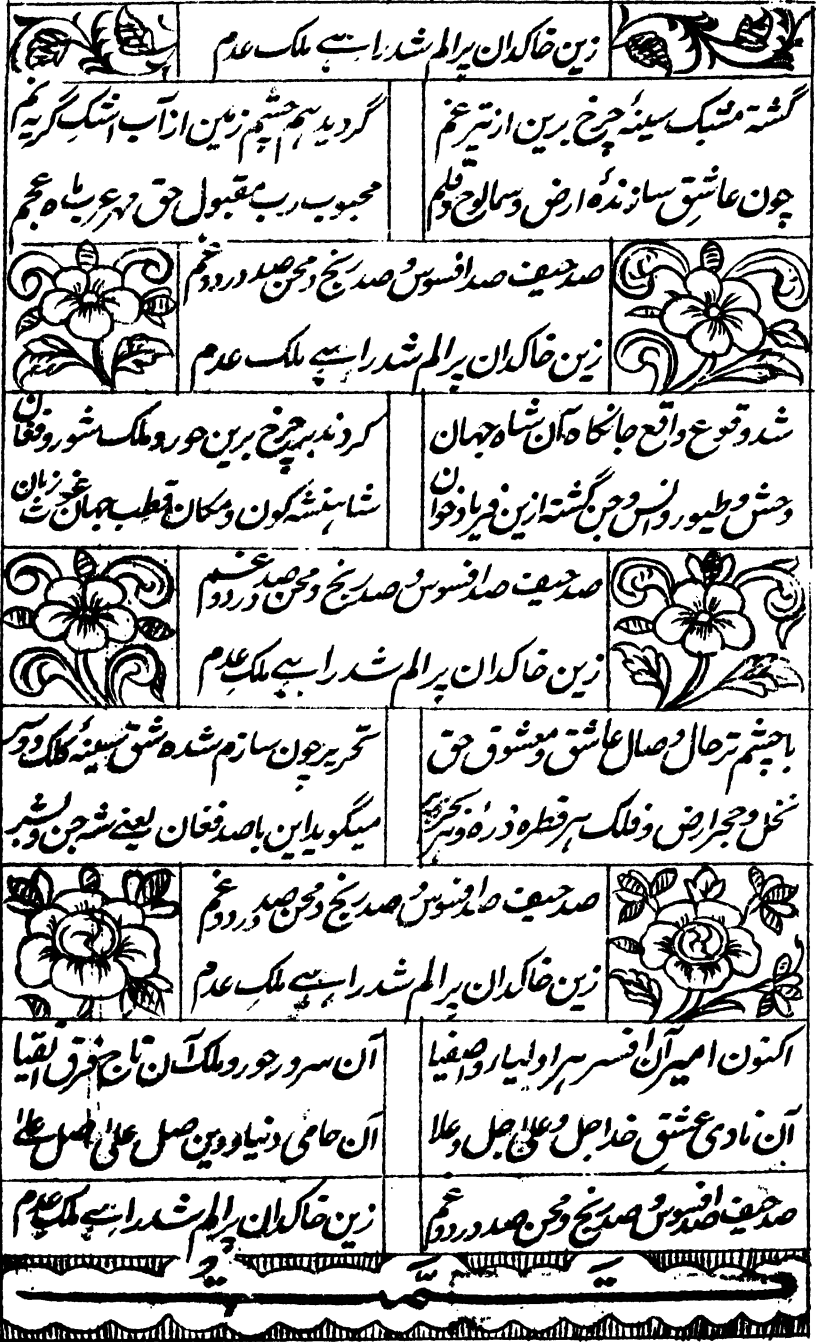 زین خاکدان پرالم شد راہے ملک عدم
گشتہ مشبک سینۂ چرخ برین از تیر غم
گردید ہم چشم زمین از آب اشک گریہ نم
چون عاشق سازندۂ ارض و سما لوح و قلم
محبوب رب مقبول حق مہر عرب ماہ عجم
صد حیف صد افسوس و صد رنج و محن صد درد و غم
زین خاکدان پرالم شد راہے ملک عدم
شد وقوع واقع جانکاہ آن شاہ جہان
کردند بر چرخ برین حور و ملک شور و فغان
وحش و طیور و انس و جن گشتہ ازین فریاد خوان
شاہنشہ کون و مکان قطب جہان غوث زمان
صد حیف صد افسوس و صد رنج و محن صد درد و غم
زین خاکدان پرالم شد راہے ملک عدم
با چشم تر حال وصال عاشق و معشوق حق
تحریر چون سازم شدہ شق سینۂ کلک و
نخل و حجر ارض و فلک ہر قطرہ ذرہ و
میگوید این با صد فغان یعنے ہمہ جن و بشر
صد حیف صد افسوس و صد رنج و محن صد درد و غم
زین خاکدان پرالم شد راہے ملک عدم
اکنون امیر آن افسر ہر اولیا و اصفیا
آن سرور حور و ملک آن تاج فرق اتقیا
آن نادی عشق خدا جل و علی جل و علا
آن حامی دنیا و دین صل علی صل علی
صد حیف صد افسوس و صد رنج و محن صد درد و غم
زین خاکدان پرالم شد راہے ملک عدم